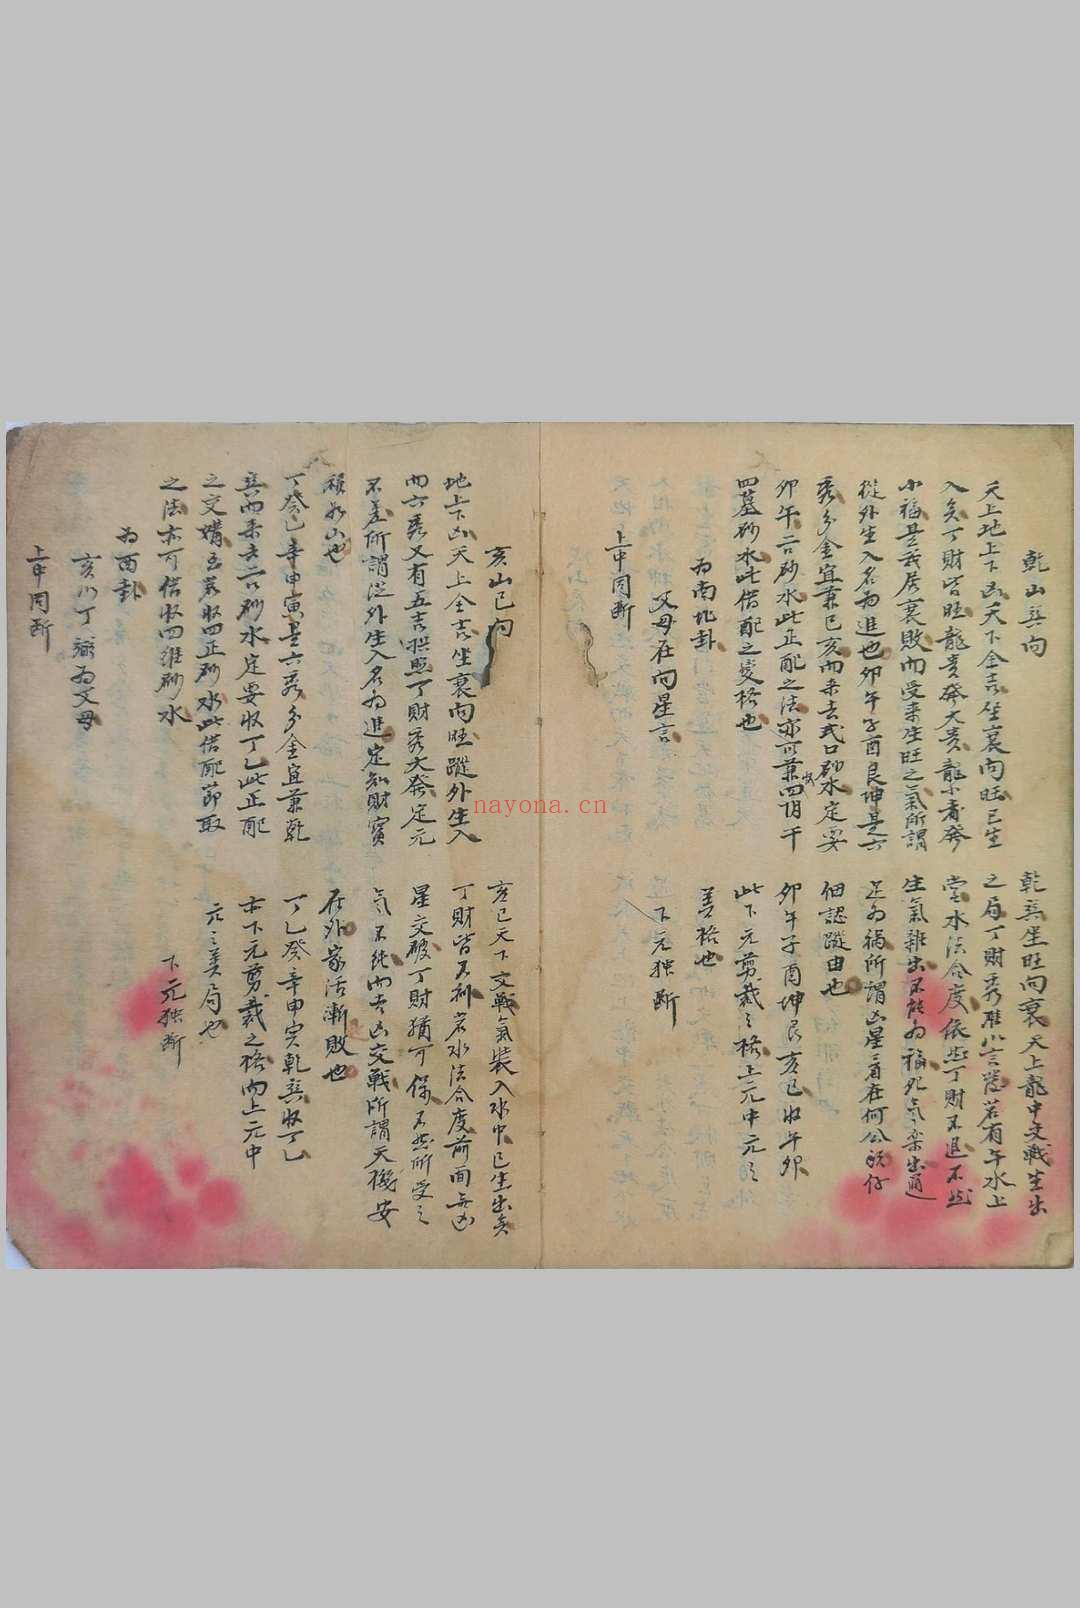 乾山巽向
天上地上下凶天下全吉坐衰向旺巳生
入亥丁財皆旺龍貴發大貴龍小者發
小福是我居衰敗而受來生旺之氣所謂
從外生入名為進也卯午子酉艮坤是六
秀分金宜兼巳亥而柔去式口砂水定要
卯午二口砂水此正配之法亦可兼收四陰干
四墓砂水此借配之變格也
為南北卦
父母在向星言
上中同断
乾巽坐旺向衰天上龍中交戰生出
之局丁財秀难以言発若有午水上
堂水法合度依然丁財不退不然
生氣雖出不能為福死氣來出適
足为禍所謂凶星看在何公祝仔
細認蹤由也
卯午子酉坤艮亥巳收午卯
此下元剪裁之格上元中元之
善格也
下元独断
亥山巳向
地上下凶天上全吉坐衰向旺蹤外生入
而六秀又有五吉拱照丁財秀大發定元
不差所謂從外生入名为進定知財寳
積如山也
丁癸乙辛申寅是六秀分金宜兼乾
巽而柔去二口砂水定要收丁乙此正配
之交媾也若收四正砂水此借配節取
之法亦可借收四維砂水
为西卦
亥以丁 为父母
上中同断
亥巳天下交戰氣裝入水中巳生出亥
丁財皆不利若水法合度前面無凶
星交破丁財猶可保不然所受之
氣不純而吉凶交戰所謂天機安
在外家活漸敗也
丁乙癸辛申寅乾巽收丁乙
亦下元剪裁之格內上元中
元之美局也
下元独断
nayona.cn